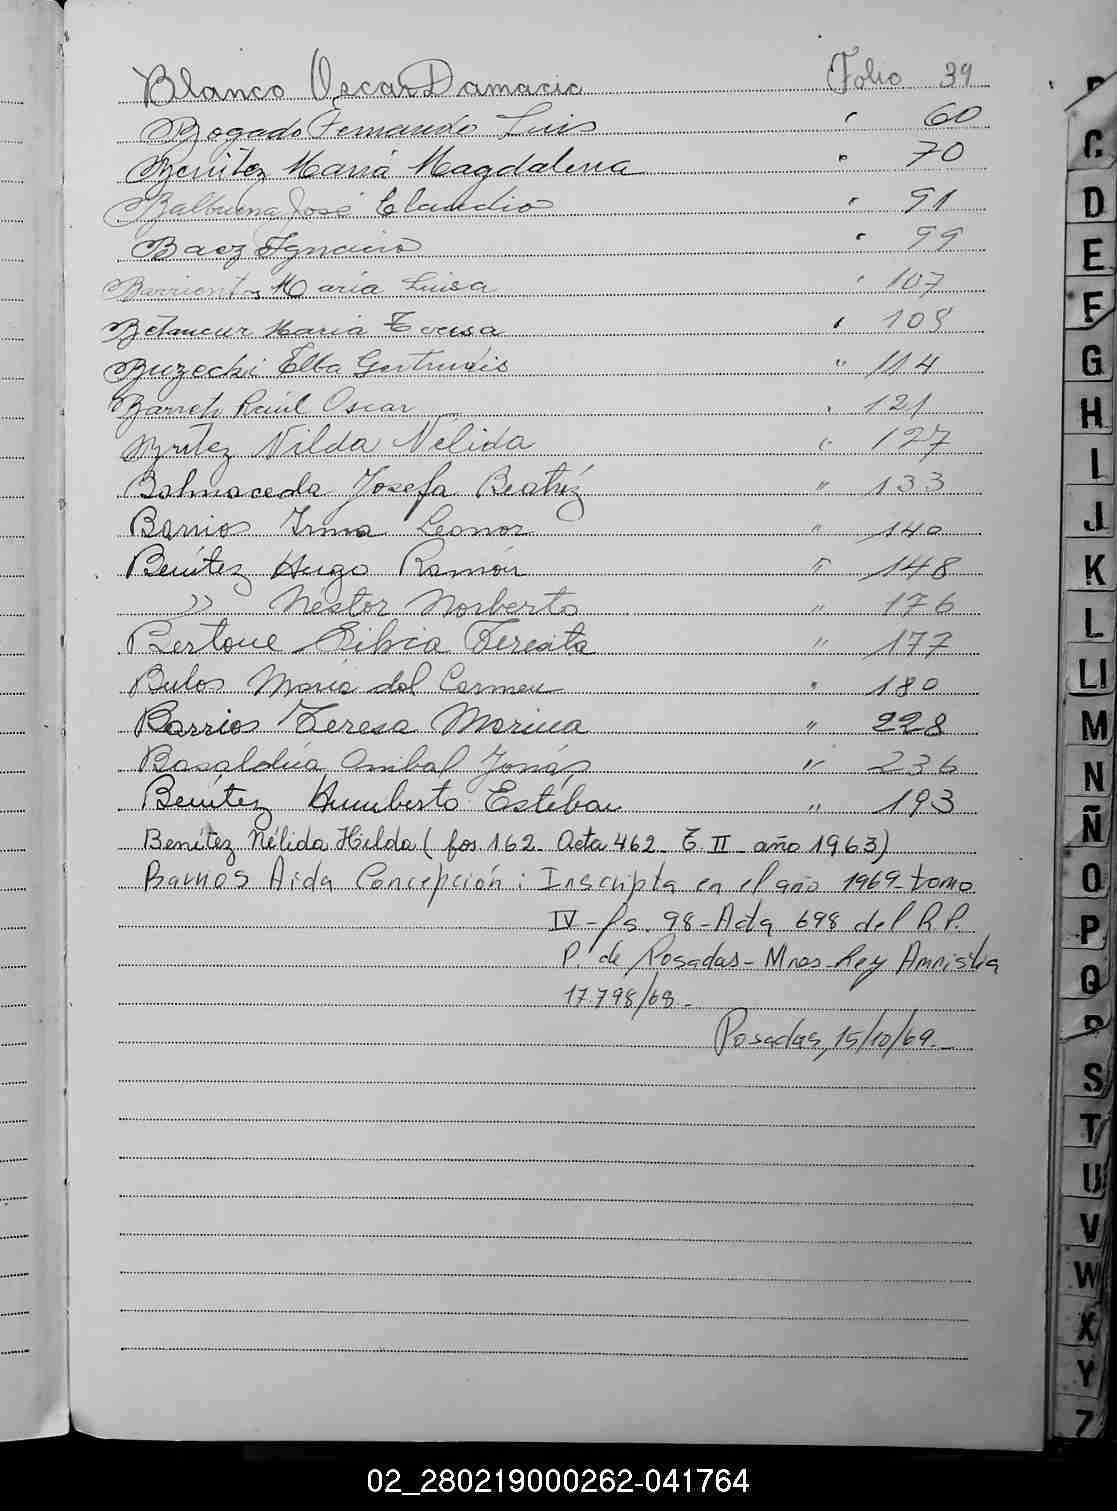 Blanco Oscar Damacio Folio 39
Bogado Fernando Luis " 60
Benítez María Magdalena " 70
Balbuena José Claudio " 91
Baez Ignacio " 99
Barrientos María Luisa " 107
Betancur Maria Teresa " 108
Buzechi Elba Gertrudis " 114
Barreto Raúl Oscar " 121
Britez Nilda Nélida " 127
Balmaceda Josefa Beatríz " 133
Barrios Irma Leonor " 140
Benítez Hugo Ramón " 148
" Nestor Norberto " 176
Bertone Silvia Teresita " 177
Bulos María del Carmen " 180
Barrios Teresa Marina " 228
Basaldúa Anibal Jonás " 236
Benítez Humberto Estéban " 193
Benítez Nélida Hilda (fos 162- Acta 462- T. II- año 1963)
Barrios Aida Concepción: Inscripta en el año 1969-tomo
IV-fs. 98-Acta 698 del R.P.
P. de Posadas-Mnes-Ley Amnistía
17.798/68-
Posadas, 15/10/69.-
C
D
E
F
G
H
I
J
K
L
Ll
M
N
Ñ
O
P
Q
R
S
T
U
V
W
X
Y
Z
02_280219000262-041764